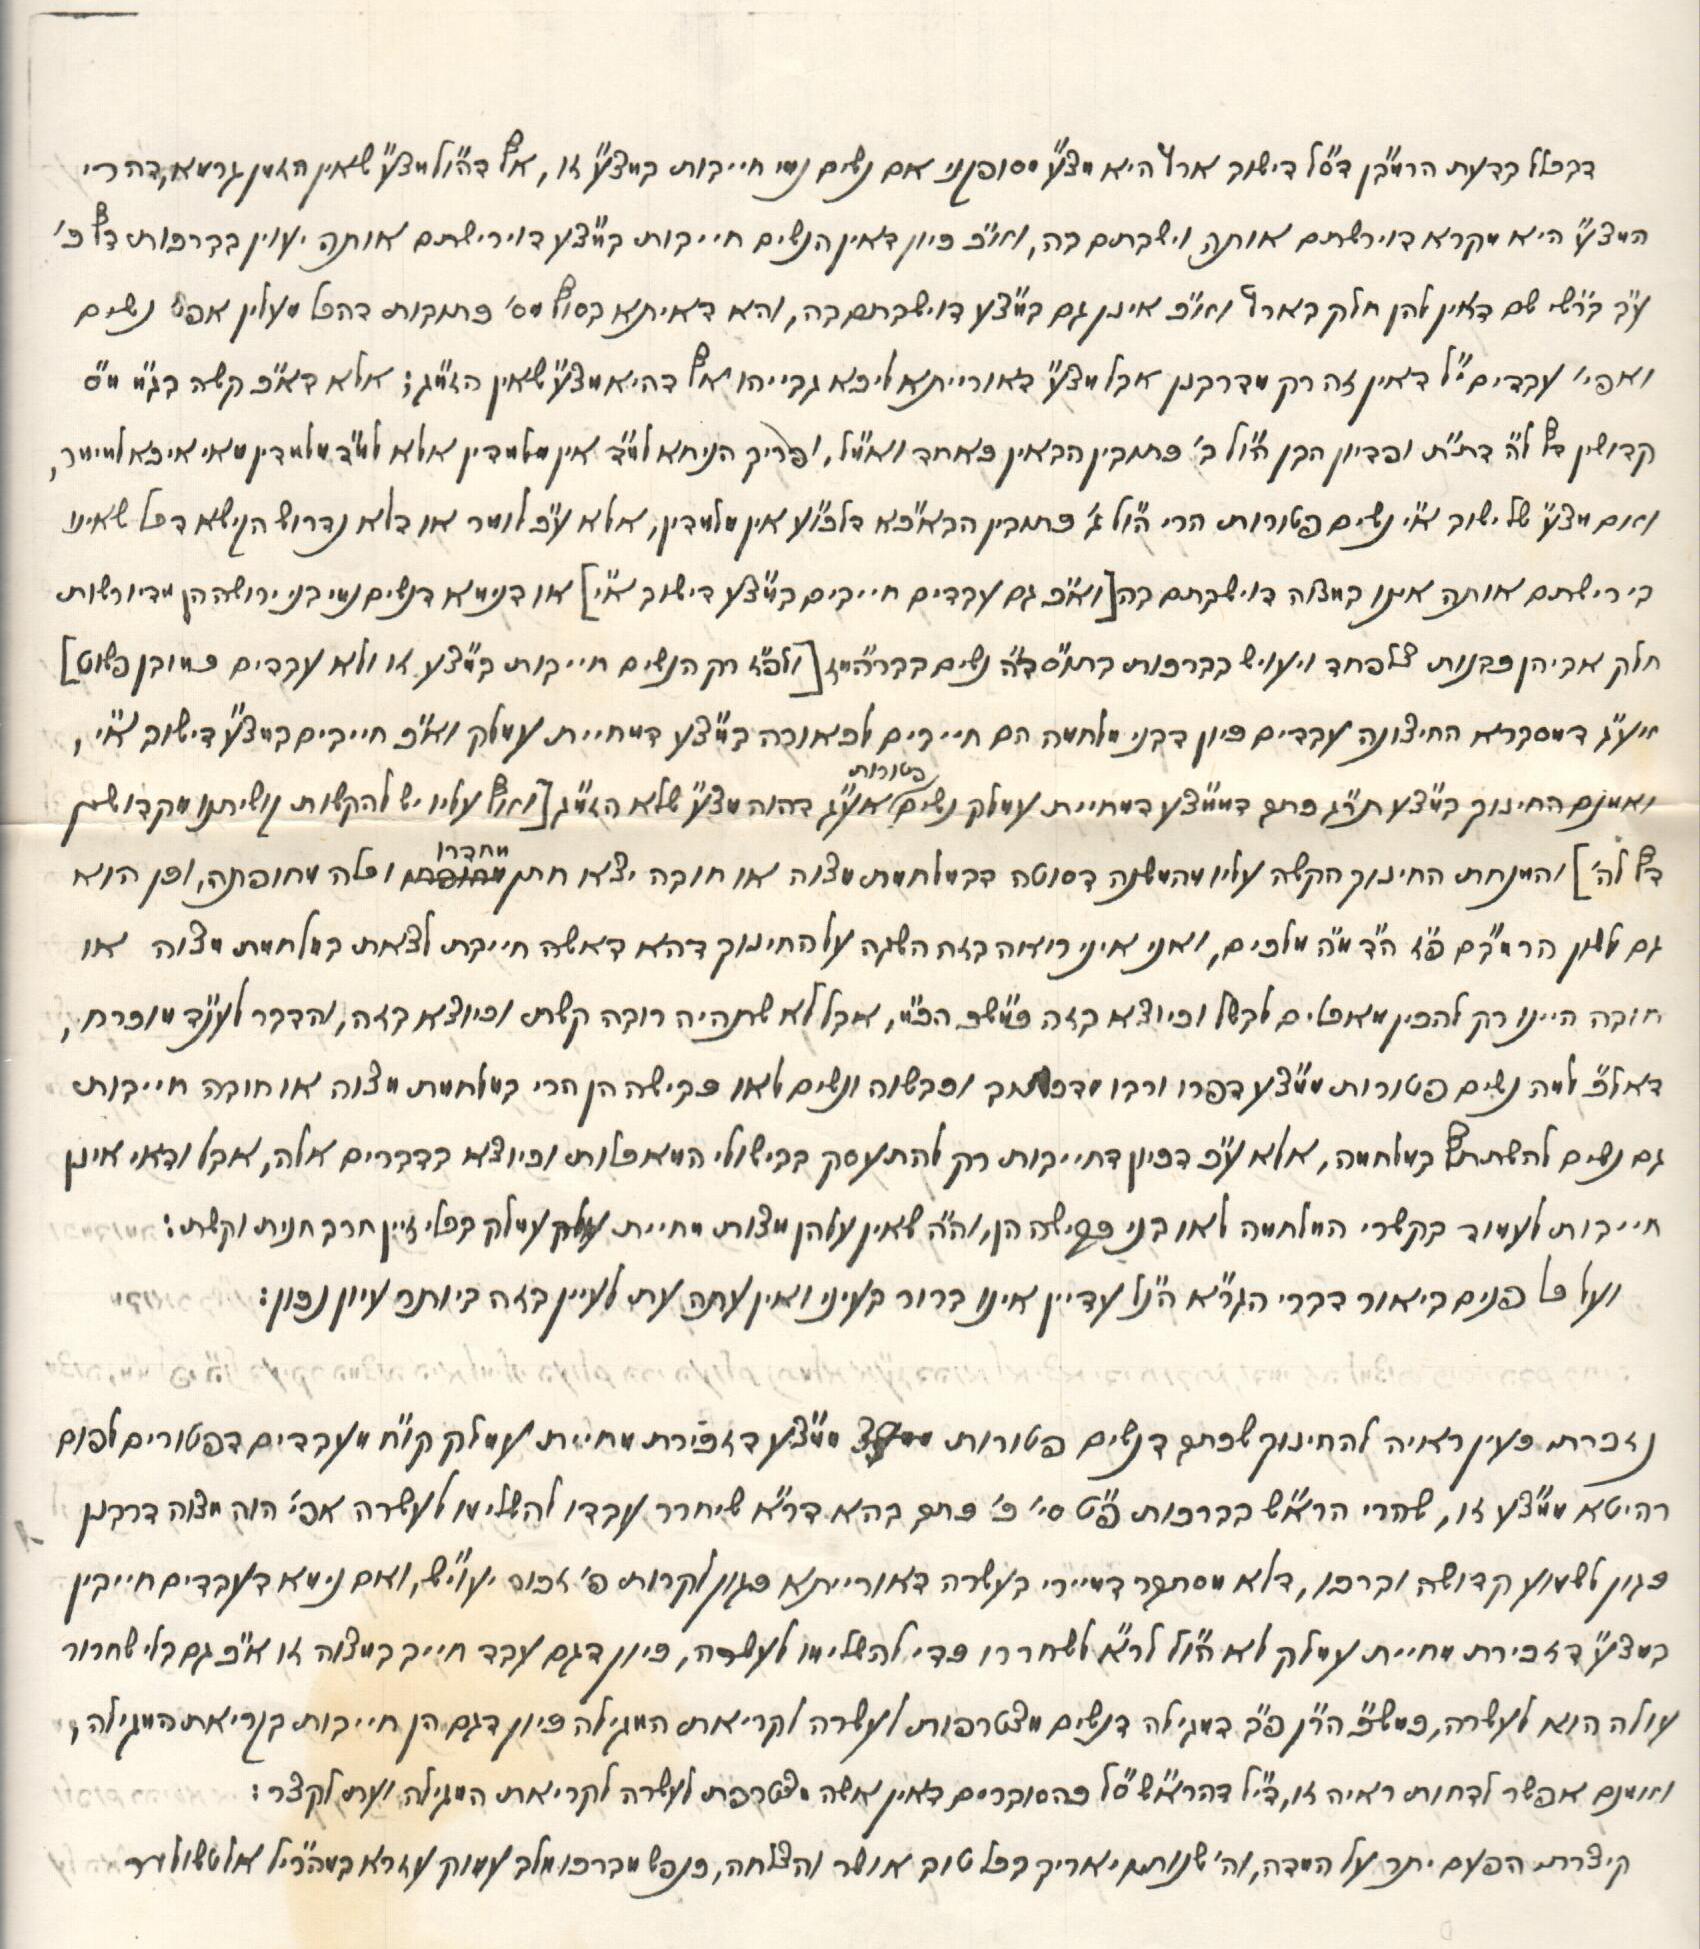 דבכלל בדעת הרמב"ן דס"ל דישוב ארץ היא מצע" מסופקני אם נשים נמי חייבות במצע" זו, אף דה"ול מצע" שאין הזמן גרמא, דהרי
המצע" היא מקרא דוירשתם אותה וישבתם בה, וא"כ כיון דאין הנשים חייבות במ"צע דוירישתם אותה יעוין בברכות דף כ'
ע"ב ברש"י שם דאין להן חלק בארץ וא"כ אינן גם במ"צע דוישבתם בה, והא דאיתא בסוף מס' כתובות דהכל מעלין אפי' נשים
ואפי' עבדים י"ל דאין זה רק מדרבנן אבל מצע" דאורייתא ליכא גבייהו אף דהיא מצע" שאין הזמ"ג; אלא דא"כ קשה בגמ' מ"ס
קדושין דף ל"ה דת"ת ופדיון הבן ה"ול ב' כתובין הבאין כאחד ואמ"ל, ופריך הניחא למ"ד אין מלמדין אלא למ"ד מלמדין מאי איכא למימר,
ואם מצע" של ישוב א"י נשים פטורות הרי ה"ול ג' כתובין הבא"כא דלכ"וע אין מלמדין, אלא ע"כ לומר או דלא נדרוש הקישא דכל שאינו
בירישתם אותה אינו במצוה דוישבתם בה [וא"כ גם עבדים חייבים במ"צע דישוב א"י] או דנימא דנשים נמי בני ירושה הן מדיורשות
חלק אביהן כבנות צלפחד ויעויש בברכות בתוס' ד"ה נשים בברהמ"ז [ולפ"ז רק הנשים חייבות במ"צע זו ולא עבדים כמובן פשוט]
ויע"ג דמסברא החיצונה עבדים כיון דבני מלחמה הם חייבים לכאורה במ"צע דמחיית עמלק וא"כ חייבים במצע" דישוב א"י,
ואמנם החינוך במ"צע תר"ג כתב דממ"צע דמחיית עמלק נשים פטורות אע"ג דהוה מצע" שלא הזמ"ג [ואף עליו יש להקשות קושיתנו מקדושין
דף לה'] והמנחת החינוך הקשה עליו מהמשנה דסוטה דבמלחמת מצוה או חובה יצא חתן מחדרו וכלה מחופתה, וכן הוא
גם לשון הרמב"ם פ"ז ה"ד מ"ה מלכים, ואני איני רואה בזה השגה על החינוך דהא דאשה חייבת לצאת במלחמת מצוה או
חובה היינו רק להכין מאכלים לבשל וכיוצא בזה כמ"שכ הכ"מ, אבל לא שתהיה רובה קשת וכיוצא בזה, והדבר לענ"ד מוכרח,
דאל"כ למה נשים פטורות ממ"צע דפרו ורבו מדכתוב וכבשוה ונשים לאו כבישה הן הרי במלחמת מצוה או חובה חייבות
גם נשים להשתתף במלחמה, אלא ע"כ דכיון דחייבות רק להתעסק בבישולי המאכלות וכיוצא בדברים אלה, אבל ודאי אינן
חייבות לעמוד בקשרי המלחמה לאו בני כבישה הן, וה"ה שאין עלהן מצות מחיית עמלק בכלי זיין חרב חנית וקשת:
ועל כל פנים ביאור דברי הגר"א הנ"ל עדיין אינו ברור בעיני ואין עתה עת לעיין בזה ביותר עיון נכון:
נזכרת כעין ראיה להחינוך שכתב דנשים פטורות ממ"צע דזכירת מחיית עמלק קו"ח מעבדים דפטורים לפום
רהיטא ממ"צע זו, שהרי הרא"ש בברכות פ"ט סי' כ' כתב בהא דר"א שיחרר עבדו להשלימו לעשרה אפי' הוה מצוה דרבנן
כגון לשמוע קדושה וברכו, דלא מסתבר דמיירי בעשרה דאורייתא כגון לקרות פ' זכור יעו"יש, ואם נימא דעבדים חייבין
במצע" דזכירת מחיית עמלק לא ה"ול לר"א לשחררו כדי להשלימו לעשרה, כיון דגם עבד חייב במצוה זו א"כ גם בלי שחרור
עולה הוא לעשרה, כמש"כ הר"ן פ"ב דמגילה דנשים מצטרפות לעשרה לקריאת המגילה כיון דגם הן חייבות בקריאת המגילה,
ואמנם אפשר לדחות ראיה זו, די"ל דהרא"ש ס"ל כהסוברים דאין אשה מצטרפת לעשרה לקריאת המגילה ועת לקצר:
קיצרת הפעם יתר על המדה, וה' שנותם יאריך בכל טוב אושר והצלחה, כנפש מברכו מלב עמוק עזרא במהר"יל אלטשולער